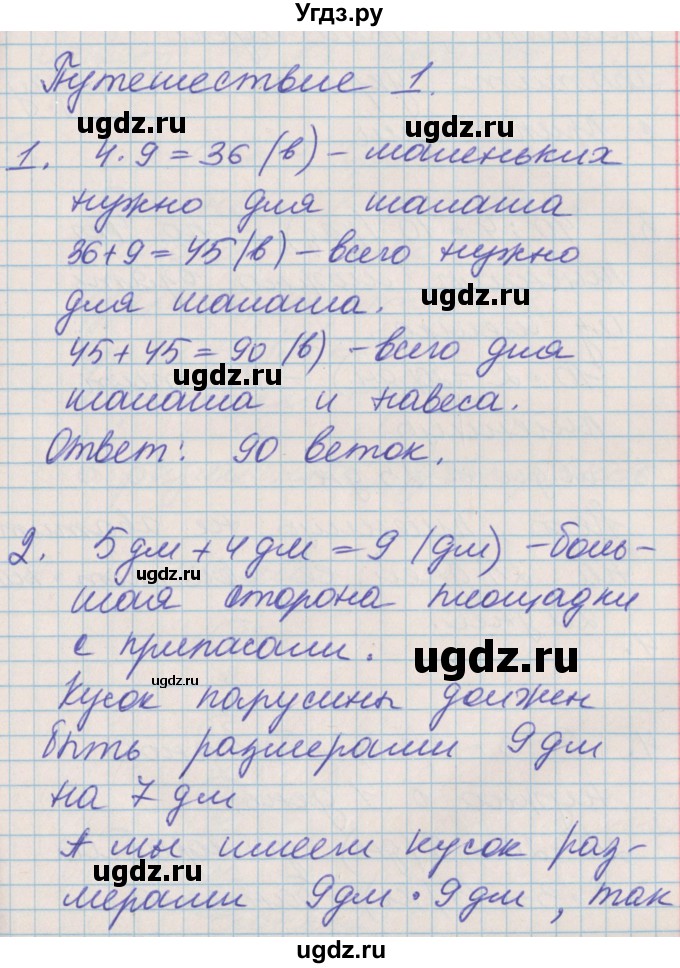 Угдз.ру
Путешествие 1.
ugdz.ru
ugdz.ru
1. 4·9=36 (в) – маленьких
нужно для шалаша
36+9=45 (в) – всего нужно
ugdz.ru
для шалаша.
45+45=90 (в) – всего для
ugdz.ru
шалаша и навеса.
Ответ: 90 веток.
2. 5дм+4дм=9 (дм) – боль-
ugdz.ru
шая сторона площадки
с припасами.
ugdz.ru
ugdz.ru
Кусок парусины должен
быть размерами 9дм
на 7дм
А мы имеем кусок раз-
ugdz.ru
мерами 9дм·9дм, так
ugdz.ru